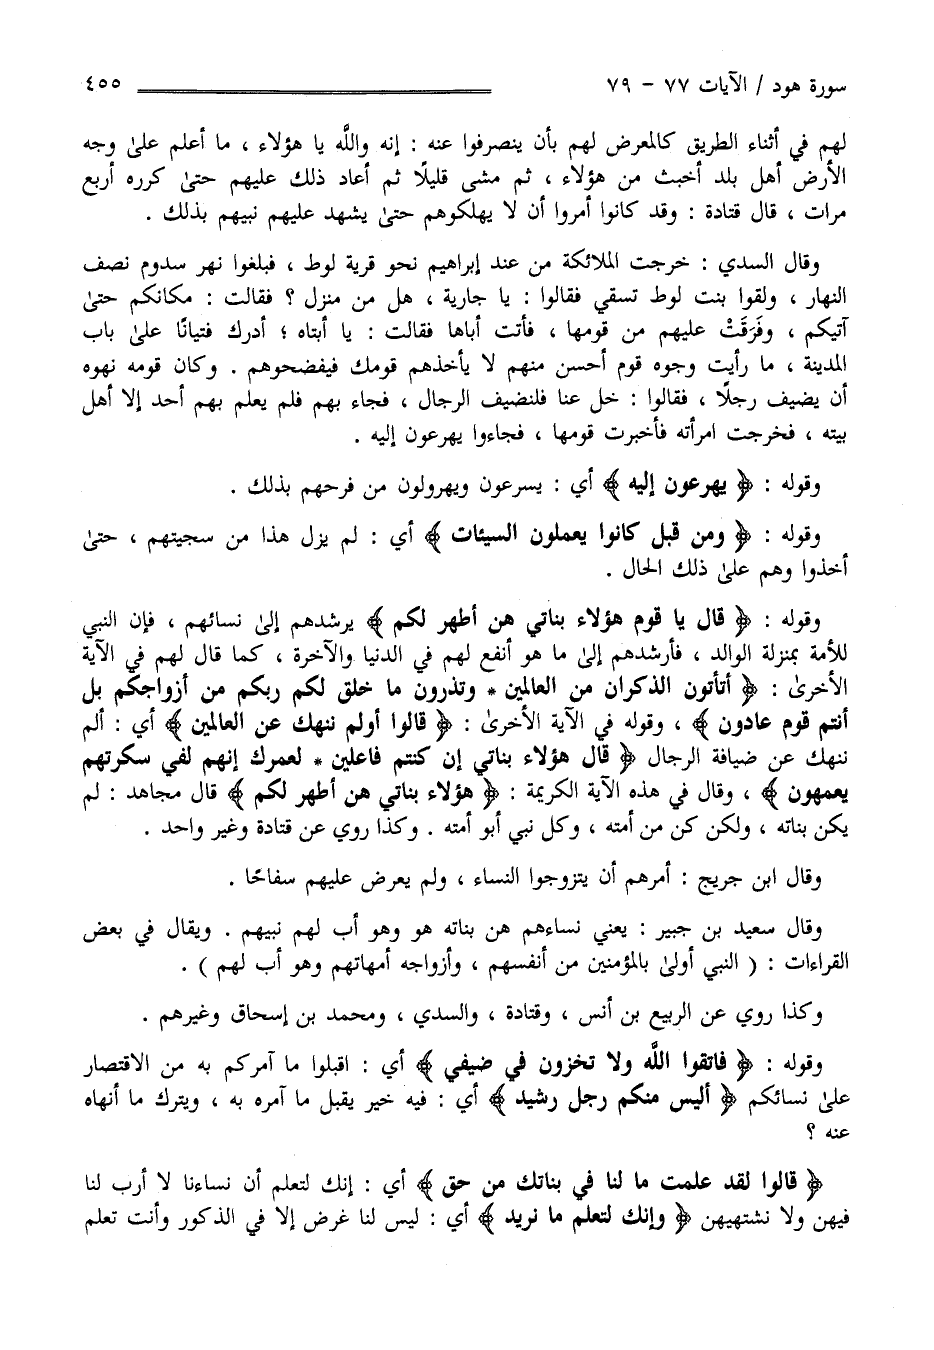 سورة هود / الآيات ٧٧ - ٧٩ ٤٥٥
لهم في أثناء الطريق كالمعرض لهم بأن ينصرفوا عنه : إنه واللَّه يا هؤلاء ، ما أعلم علىٰ وجه
الأرض أهل بلد أخبث من هؤلاء ، ثم مشى قليلًا ثم أعاد ذلك عليهم حتىٰ كرره أربع
مرات ، قال قتادة : وقد كانوا أمروا أن لا يهلكوهم حتىٰ يشهد عليهم نبيهم بذلك .
وقال السدي : خرجت الملائكة من عند إبراهيم نحو قرية لوط ، فبلغوا نهر سدوم نصف
النهار ، ولقوا بنت لوط تسقي فقالوا : يا جارية ، هل من منزل ؟ فقالت : مكانكم حتىٰ
آتيكم ، وفَرَقَتْ عليهم من قومها ، فأتت أباها فقالت : يا أبتاه ؛ أدرك فتيانًا علىٰ باب
المدينة ، ما رأيت وجوه قوم أحسن منهم لا يأخذهم قومك فيفضحوهم . وكان قومه نهوه
أن يضيف رجلًا ، فقالوا : خل عنا فلنضيف الرجال ، فجاء بهم فلم يعلم بهم أحد إلا أهل
بيته ، فخرجت امرأته فأخبرت قومها ، فجاءوا يهرعون إليه .
وقوله : ﴿ يهرعون إليه ﴾ أي : يسرعون ويهرولون من فرحهم بذلك .
وقوله : ﴿ ومن قبل كانوا يعملون السيئات ﴾ أي : لم يزل هذا من سجيتهم ، حتىٰ
أخذوا وهم علىٰ ذلك الحال .
وقوله : ﴿ قال يا قوم هؤلاء بناتي هن أطهر لكم ﴾ يرشدهم إلىٰ نسائهم ، فإن النبي
للأمة بمنزلة الوالد ، فأرشدهم إلىٰ ما هو أنفع لهم في الدنيا والآخرة ، كما قال لهم في الآية
الأخرىٰ : ﴿ أتأتون الذكران من العالمين * وتذرون ما خلق لكم ربكم من أزواجكم بل
أنتم قوم عادون ﴾ ، وقوله في الآية الأخرىٰ : ﴿ قالوا أولم ننهك عن العالمين ﴾ أي : ألم
ننهك عن ضيافة الرجال ﴿ قال هؤلاء بناتي إن كنتم فاعلين * لعمرك إنهم لفي سكرتهم
يعمهون ﴾ ، وقال في هذه الآية الكريمة : ﴿ هؤلاء بناتي هن أطهر لكم ﴾ قال مجاهد : لم
يكن بناته ، ولكن كن من أمته ، وكل نبي أبو أمته . وكذا روي عن قتادة وغير واحد .
وقال ابن جريج : أمرهم أن يتزوجوا النساء ، ولم يعرض عليهم سفاحًا .
وقال سعيد بن جبير : يعني نساءهم هن بناته هو وهو أب لهم نبيهم . ويقال في بعض
القراءات : ( النبي أولىٰ بالمؤمنين من أنفسهم ، وأزواجه أمهاتهم وهو أب لهم ) .
وكذا روي عن الربيع بن أنس ، وقتادة ، والسدي ، ومحمد بن إسحاق وغيرهم .
وقوله : ﴿ فاتقوا اللَّه ولا تخزون في ضيفي ﴾ أي : اقبلوا ما آمركم به من الاقتصار
علىٰ نسائكم ﴿ أليس منكم رجل رشيد ﴾ أي : فيه خير يقبل ما آمره به ، ويترك ما أنهاه
عنه ؟
﴿ قالوا لقد علمت ما لنا في بناتك من حق ﴾ أي : إنك لتعلم أن نساءنا لا أرب لنا
فيهن ولا نشتهيهن ﴿ وإنك لتعلم ما نريد ﴾ أي : ليس لنا غرض إلا في الذكور وأنت تعلم